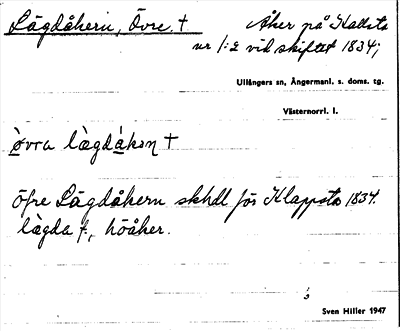 Lägdåkern, Övre. †
Åker på Klabbsta
nr 1:2 vid skiftet 1834;
Ullångers sn, Ångermanl. s. doms. tg.
Västernorrl. l.
òvra lägdákɔn †
Öfre Lägdåkern skhdl för Klappsta 1834.
lägda f., höåker.
3
Sven Hiller 1947